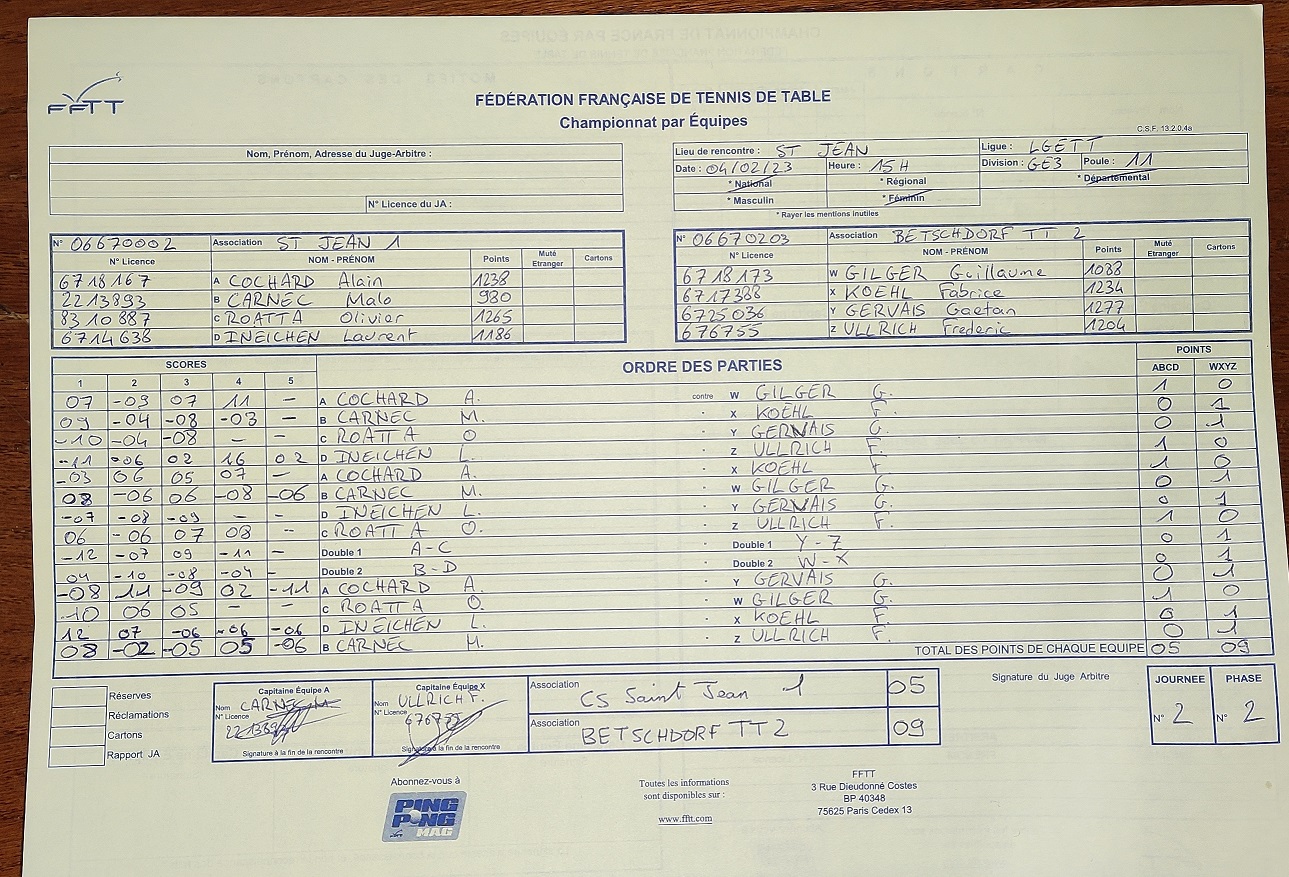 FFTT
FÉDÉRATION FRANÇAISE DE TENNIS DE TABLE
Championnat par Équipes
C.S.F. 13.2.0.4a
Nom, Prénom, Adresse du Juge-Arbitre :
N° Licence du JA :
Lieu de rencontre : ST JEAN Ligue : LGETT
Date : 04/02/23 Heure : 15H Division : GE3 Poule : 11
* National * Régional * Départemental
* Masculin * Féminin
* Rayer les mentions inutiles
N° 06670002 Association ST JEAN 1
N° Licence NOM - PRÉNOM Points Muté Etranger Cartons
6718167 A COCHARD Alain 1238
2213893 B CARNEC Malo 980
8310887 C ROATTA Olivier 1265
6714638 D INEICHEN Laurent 1186
N° 06670203 Association BETSCHDORF TT 2
N° Licence NOM - PRÉNOM Points Muté Etranger Cartons
6718173 W GILGER Guillaume 1088
6717388 X KOEHL Fabrice 1234
6725036 Y GERVAIS Gaetan 1277
676755 Z ULLRICH Frederic 1204
SCORES ORDRE DES PARTIES POINTS
1 2 3 4 5 ABCD WXYZ
07 -09 07 11 - A COCHARD A. contre W GILGER G. 1 0
09 -04 -08 -03 - B CARNEC M. X KOEHL F. 0 1
-10 -04 -08 - - C ROATTA O Y GERVAIS G. 0 1
-11 -06 02 16 02 D INEICHEN L. Z ULLRICH F. 1 0
-03 06 05 07 - A COCHARD A. X KOEHL F. 1 0
08 -06 06 -08 -06 B CARNEC M. W GILGER G. 0 1
-07 -08 -09 - - D INEICHEN L. Y GERVAIS G. 0 1
06 -06 07 08 - C ROATTA O. Z ULLRICH F. 1 0
-12 -07 09 -11 - Double 1 A-C Double 1 Y-Z 0 1
04 -10 -08 -04 - Double 2 B-D Double 2 W-X 0 1
-08 11 -09 02 -11 A COCHARD A. Y GERVAIS G. 0 1
10 06 05 - - C ROATTA O. W GILGER G. 1 0
12 07 -06 -06 -06 D INEICHEN L. X KOEHL F. 0 1
08 -02 -05 05 -06 B CARNEC M. Z ULLRICH F. 0 1
TOTAL DES POINTS DE CHAQUE EQUIPE 05 09
Réserves
Réclamations
Cartons
Rapport JA
Capitaine Équipe A
Nom CARNEC M
N° Licence
Signature à la fin de la rencontre
Capitaine Équipe X
Nom ULLRICH F.
N° Licence 676755
Signature à la fin de la rencontre
Association CS Saint Jean 1 05
Association BETSCHDORF TT 2 09
Signature du Juge Arbitre
JOURNEE PHASE
N° 2 N° 2
Abonnez-vous à
PING PONG MAG
Toutes les informations
sont disponibles sur :
www.fftt.com
FFTT
3 Rue Dieudonné Costes
BP 40348
75625 Paris Cedex 13